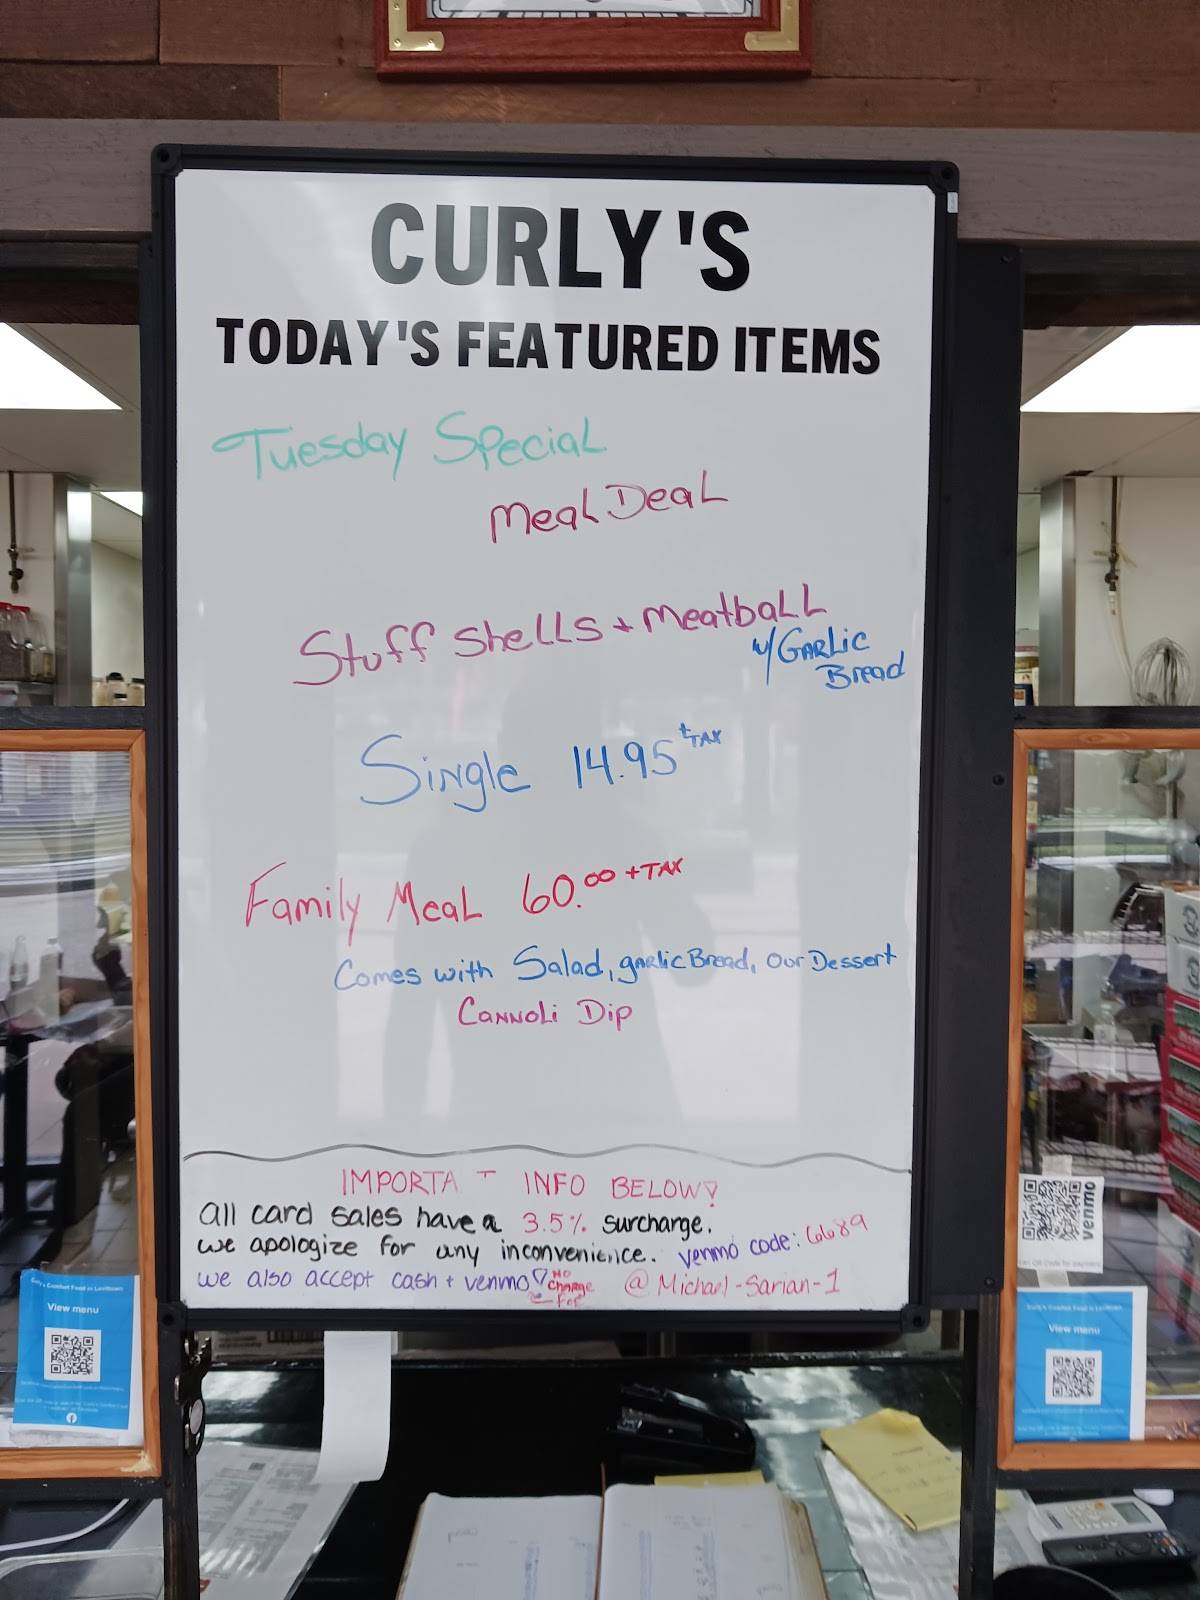 CURLY'S
TODAY'S FEATURED ITEMS
Tuesday Special
Meal Deal
Stuff Shells + Meatball
w/ Garlic
Bread
Single 14.95 + TAX
Family Meal 60.00 + TAX
Comes with Salad, garlic Bread, our Dessert
Cannoli Dip
IMPORTA T INFO BELOW!
all card sales have a 3.5% surcharge.
we apologize for any inconvenience. venmo code: 6689
we also accept cash + venmo NO CHARGE FOR @Michael-Sarian-1
venmo
View menu
View menu